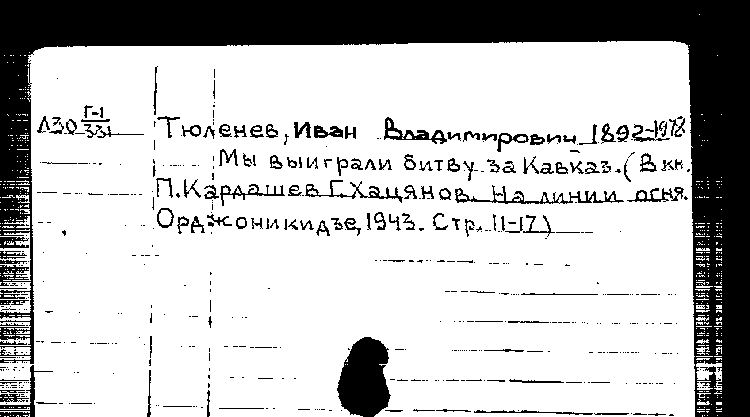 Л30 Г-1/331 Тюленев, Иван Владимирович 1892-1978
Мы выиграли битву за Кавказ. (В кн.
П. Кардашев Г. Хацянов. На линии огня.
Орджоникидзе, 1943. Стр. 11-17)